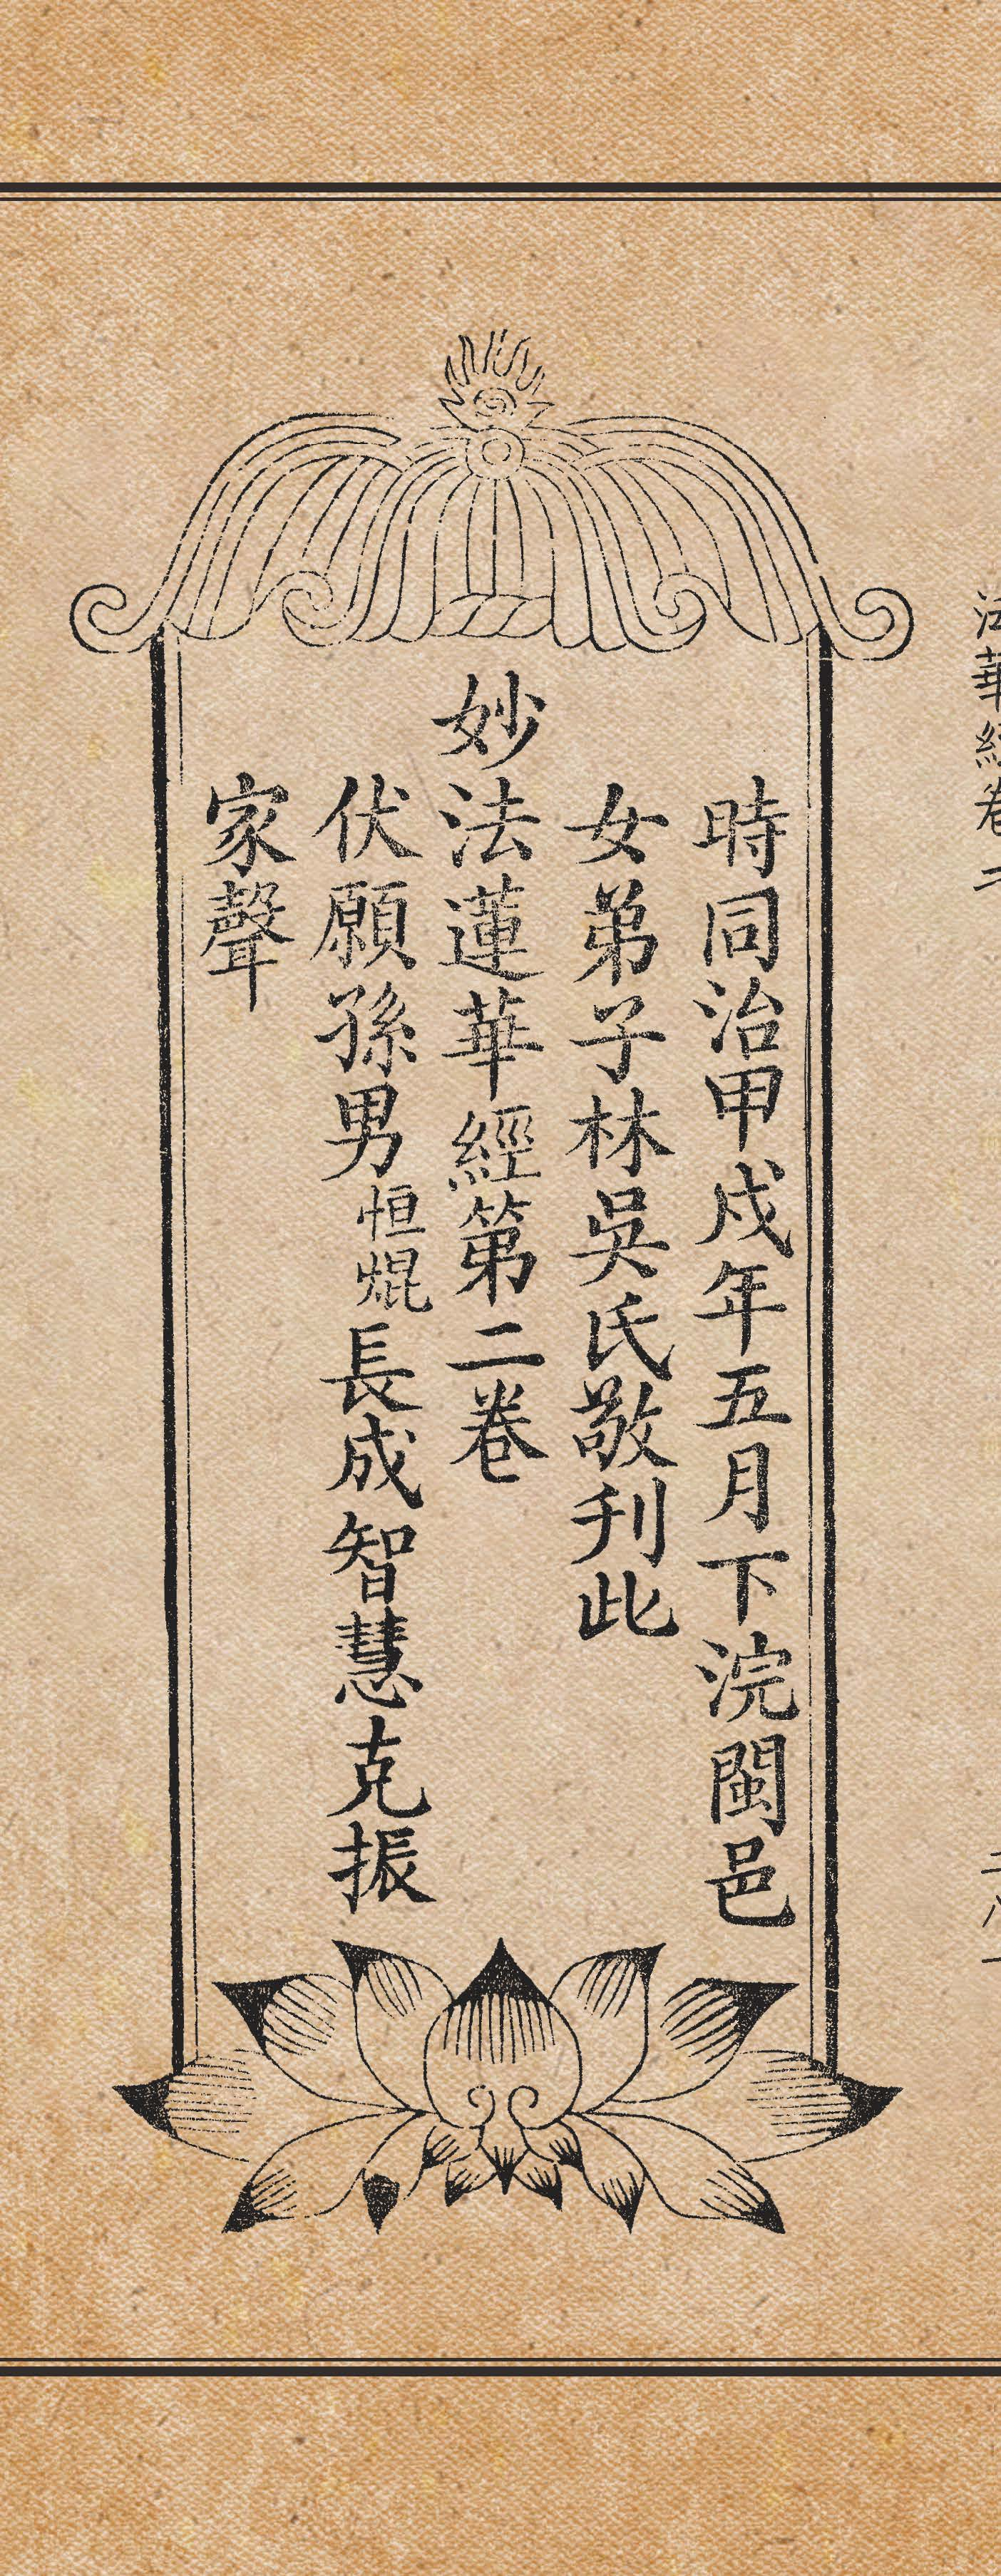 法華經卷二
時同治甲戌年五月下浣閩邑
女弟子林吳氏敬刋此
妙法蓮華經第二卷
伏願孫男恒焜長成智慧克振
家聲